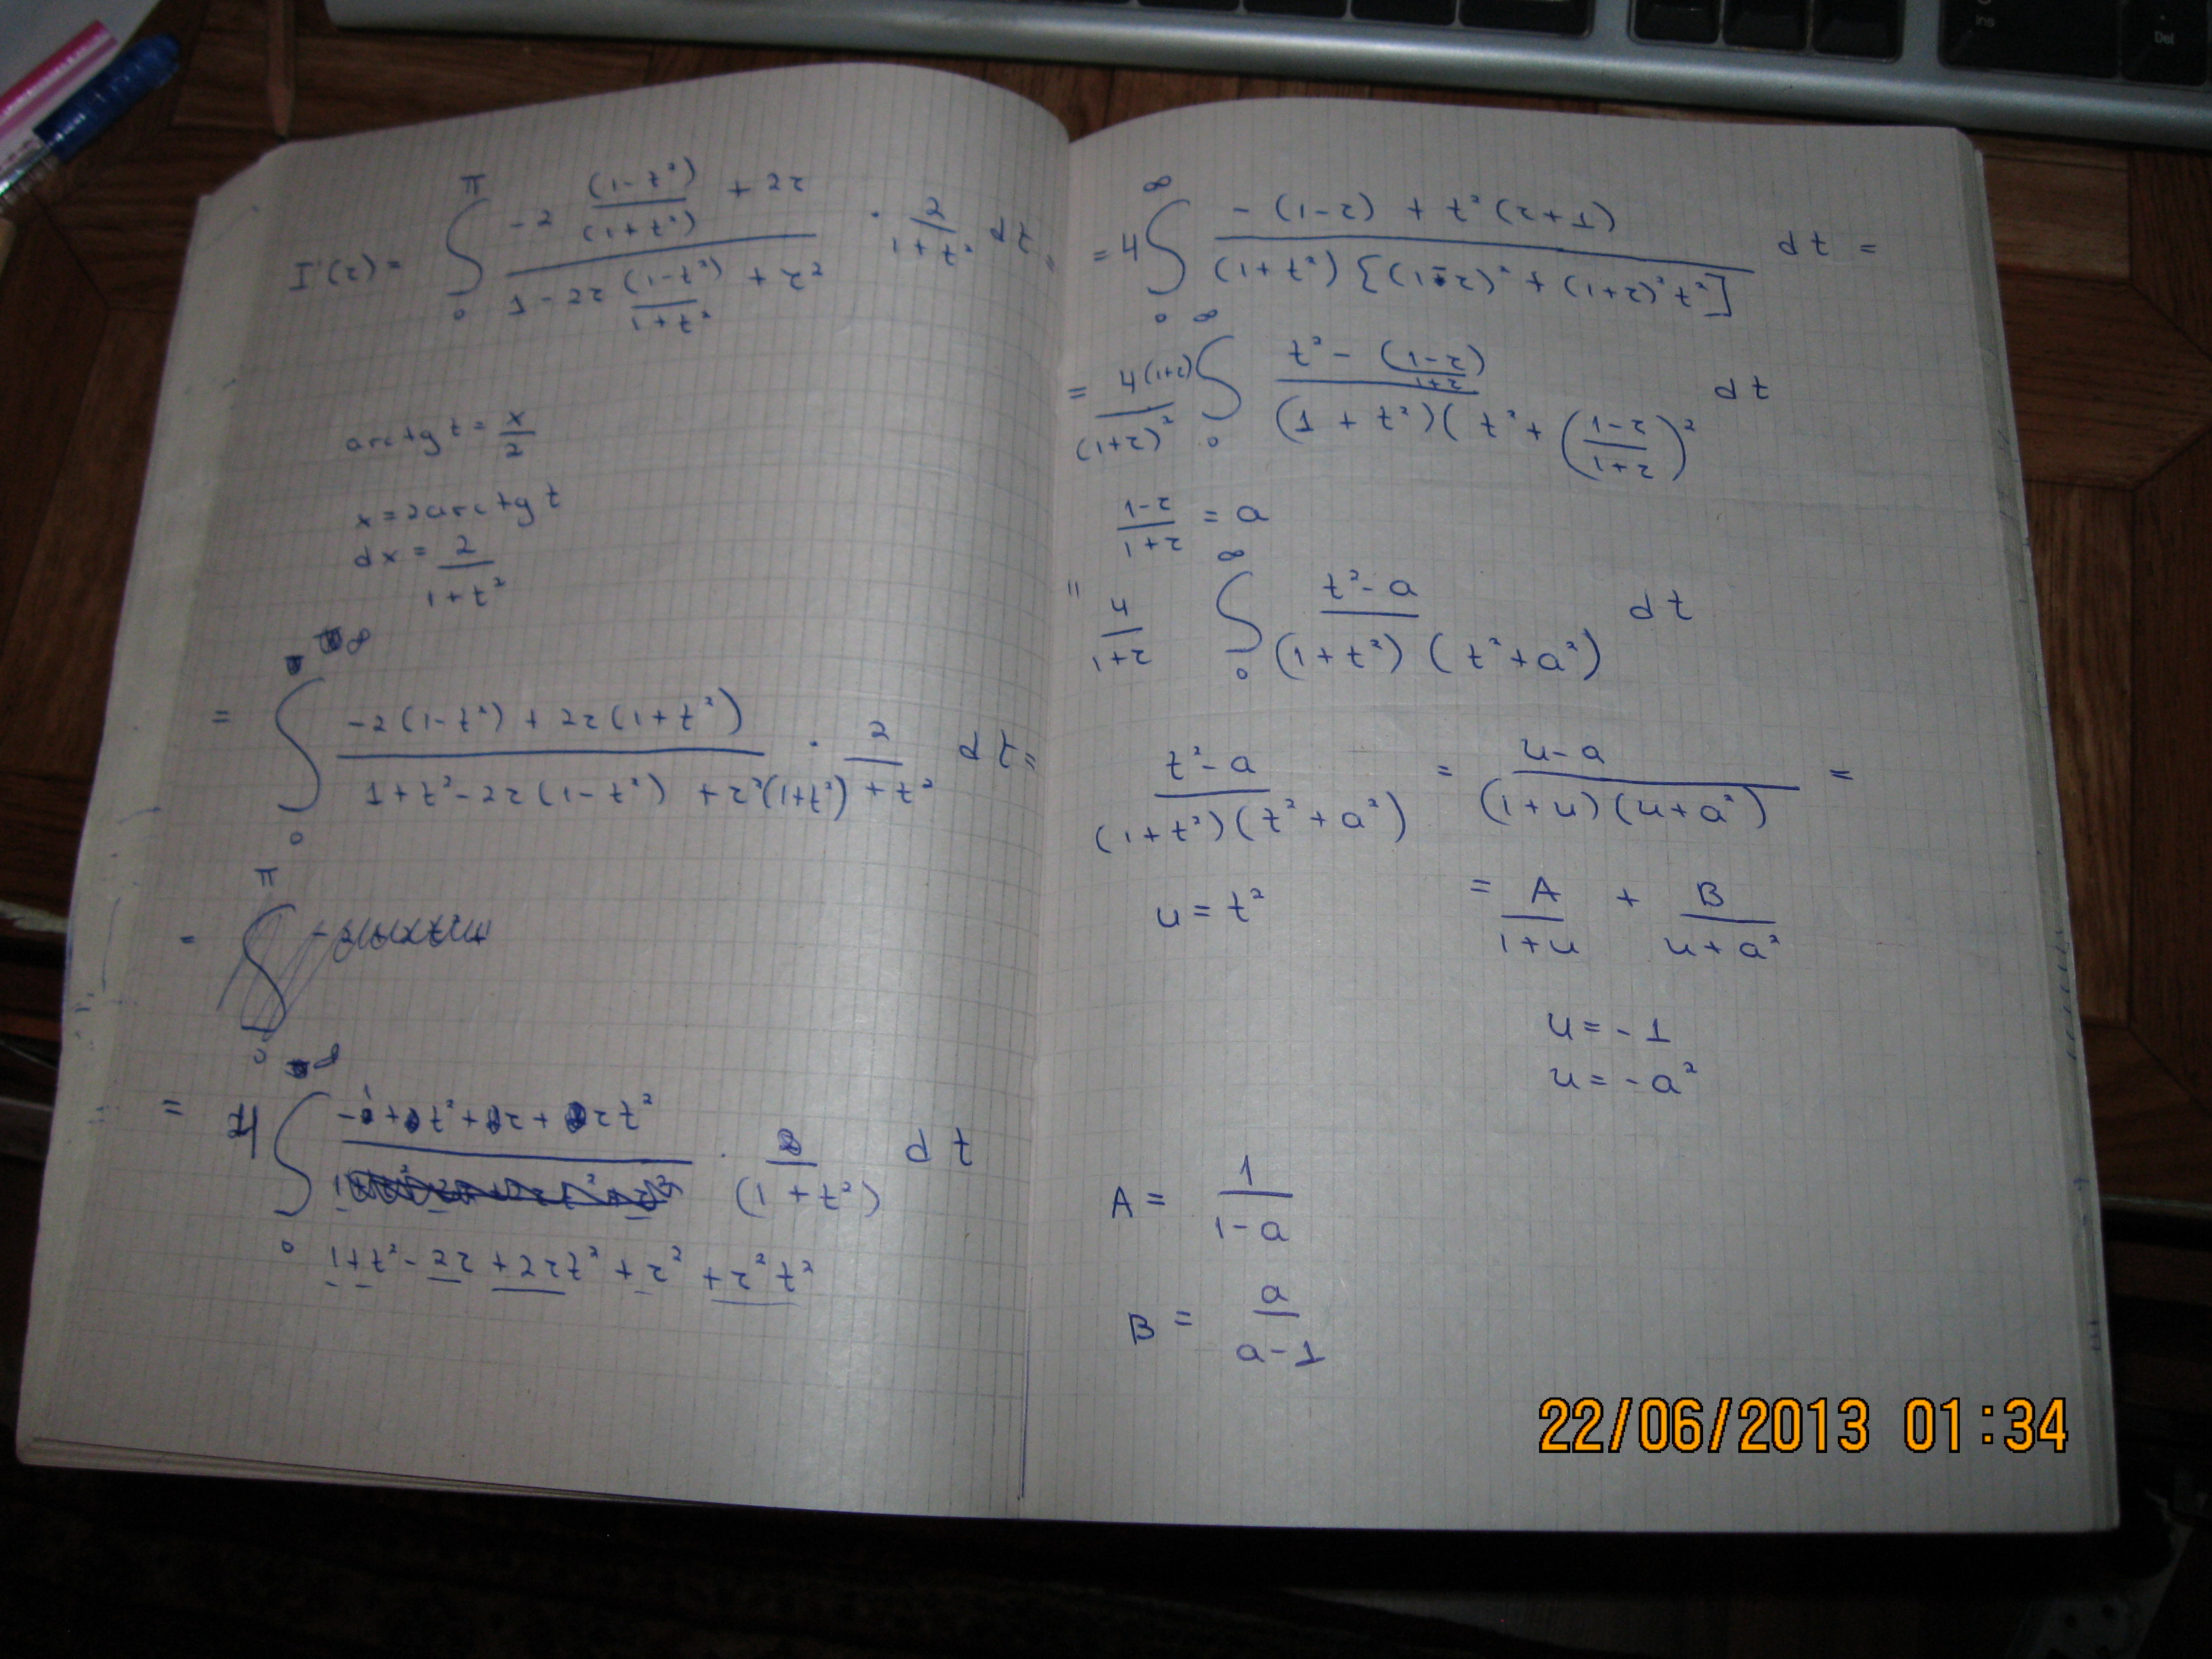 I'(r) = ∫₀^π (-2 (1-t²)/(1+t²) + 2r) / (1 - 2r (1-t²)/(1+t²) + r²) · 2/(1+t²) dt =
arctg t = x/2
x = 2arctg t
dx = 2/(1+t²)
= ∫₀^∞ (-2(1-t²) + 2r(1+t²)) / (1+t²-2r(1-t²) + r²(1+t²) + t²) · 2 dt =
= ∫₀^π
= 4 ∫₀^∞ (-1 + t² + r + rt²) / (1+t²-2r+2rt²+r²+r²t²) · 1/(1+t²) dt
= 4 ∫₀^∞ (-(1-r) + t²(r+1)) / ((1+t²)[(1-r)² + (1+r)²t²]) dt =
= 4(1+r)/(1+r)² ∫₀^∞ (t² - (1-r)/(1+r)) / ((1+t²)(t² + ((1-r)/(1+r))²) dt
(1-r)/(1+r) = a
= 4/(1+r) ∫₀^∞ (t²-a) / ((1+t²)(t²+a²)) dt
(t²-a) / ((1+t²)(t²+a²)) = (u-a) / ((1+u)(u+a²)) =
u = t² = A/(1+u) + B/(u+a²)
u = -1
u = -a²
A = 1/(1-a)
B = a/(a-1)
22/06/2013 01:34
Ins
Del